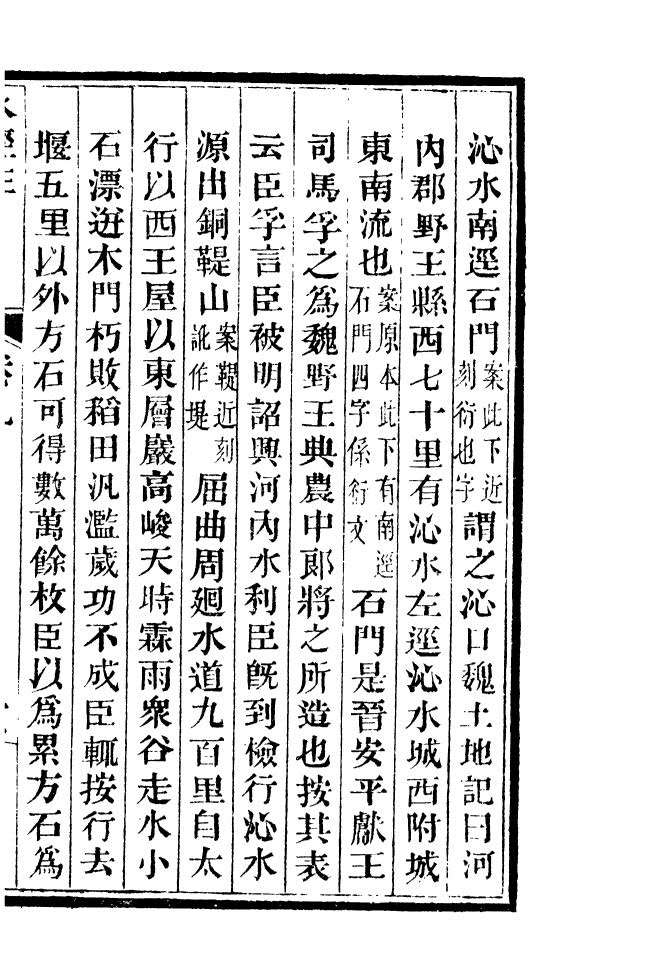 沁水南逕石門案此下近刻衍也字謂之沁口魏土地記曰河
內郡野王縣西七十里有沁水左逕沁水城西附城
東南流也案原本此下有南逕石門四字係衍文石門是晉安平獻王
司馬孚之爲魏野王典農中郎將之所造也按其表
云臣孚言臣被明詔興河內水利臣旣到檢行沁水
源出銅鞮山案鞮近刻訛作堤屈曲周迴水道九百里自太
行以西王屋以東層巖高峻天時霖雨衆谷走水小
石漂迸木門朽敗稻田汎濫歲功不成臣輒按行去
堰五里以外方石可得數萬餘枚臣以爲累方石爲